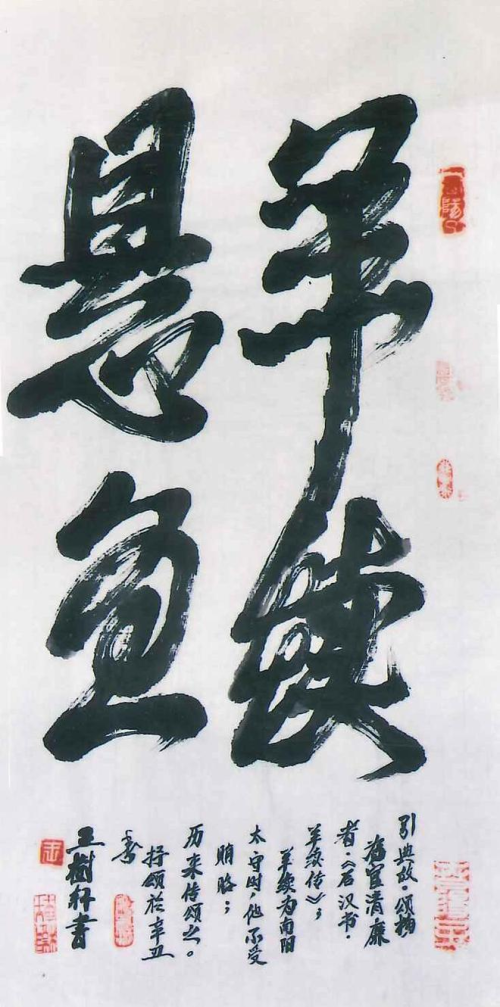 羊續
悬鱼
引典故·颂扬
為官清廉
者《后汉书·
羊续传》；
羊续为南阳
太守时，他不受
贿赂；
历来传颂之。
抒颂於辛丑
王樹書